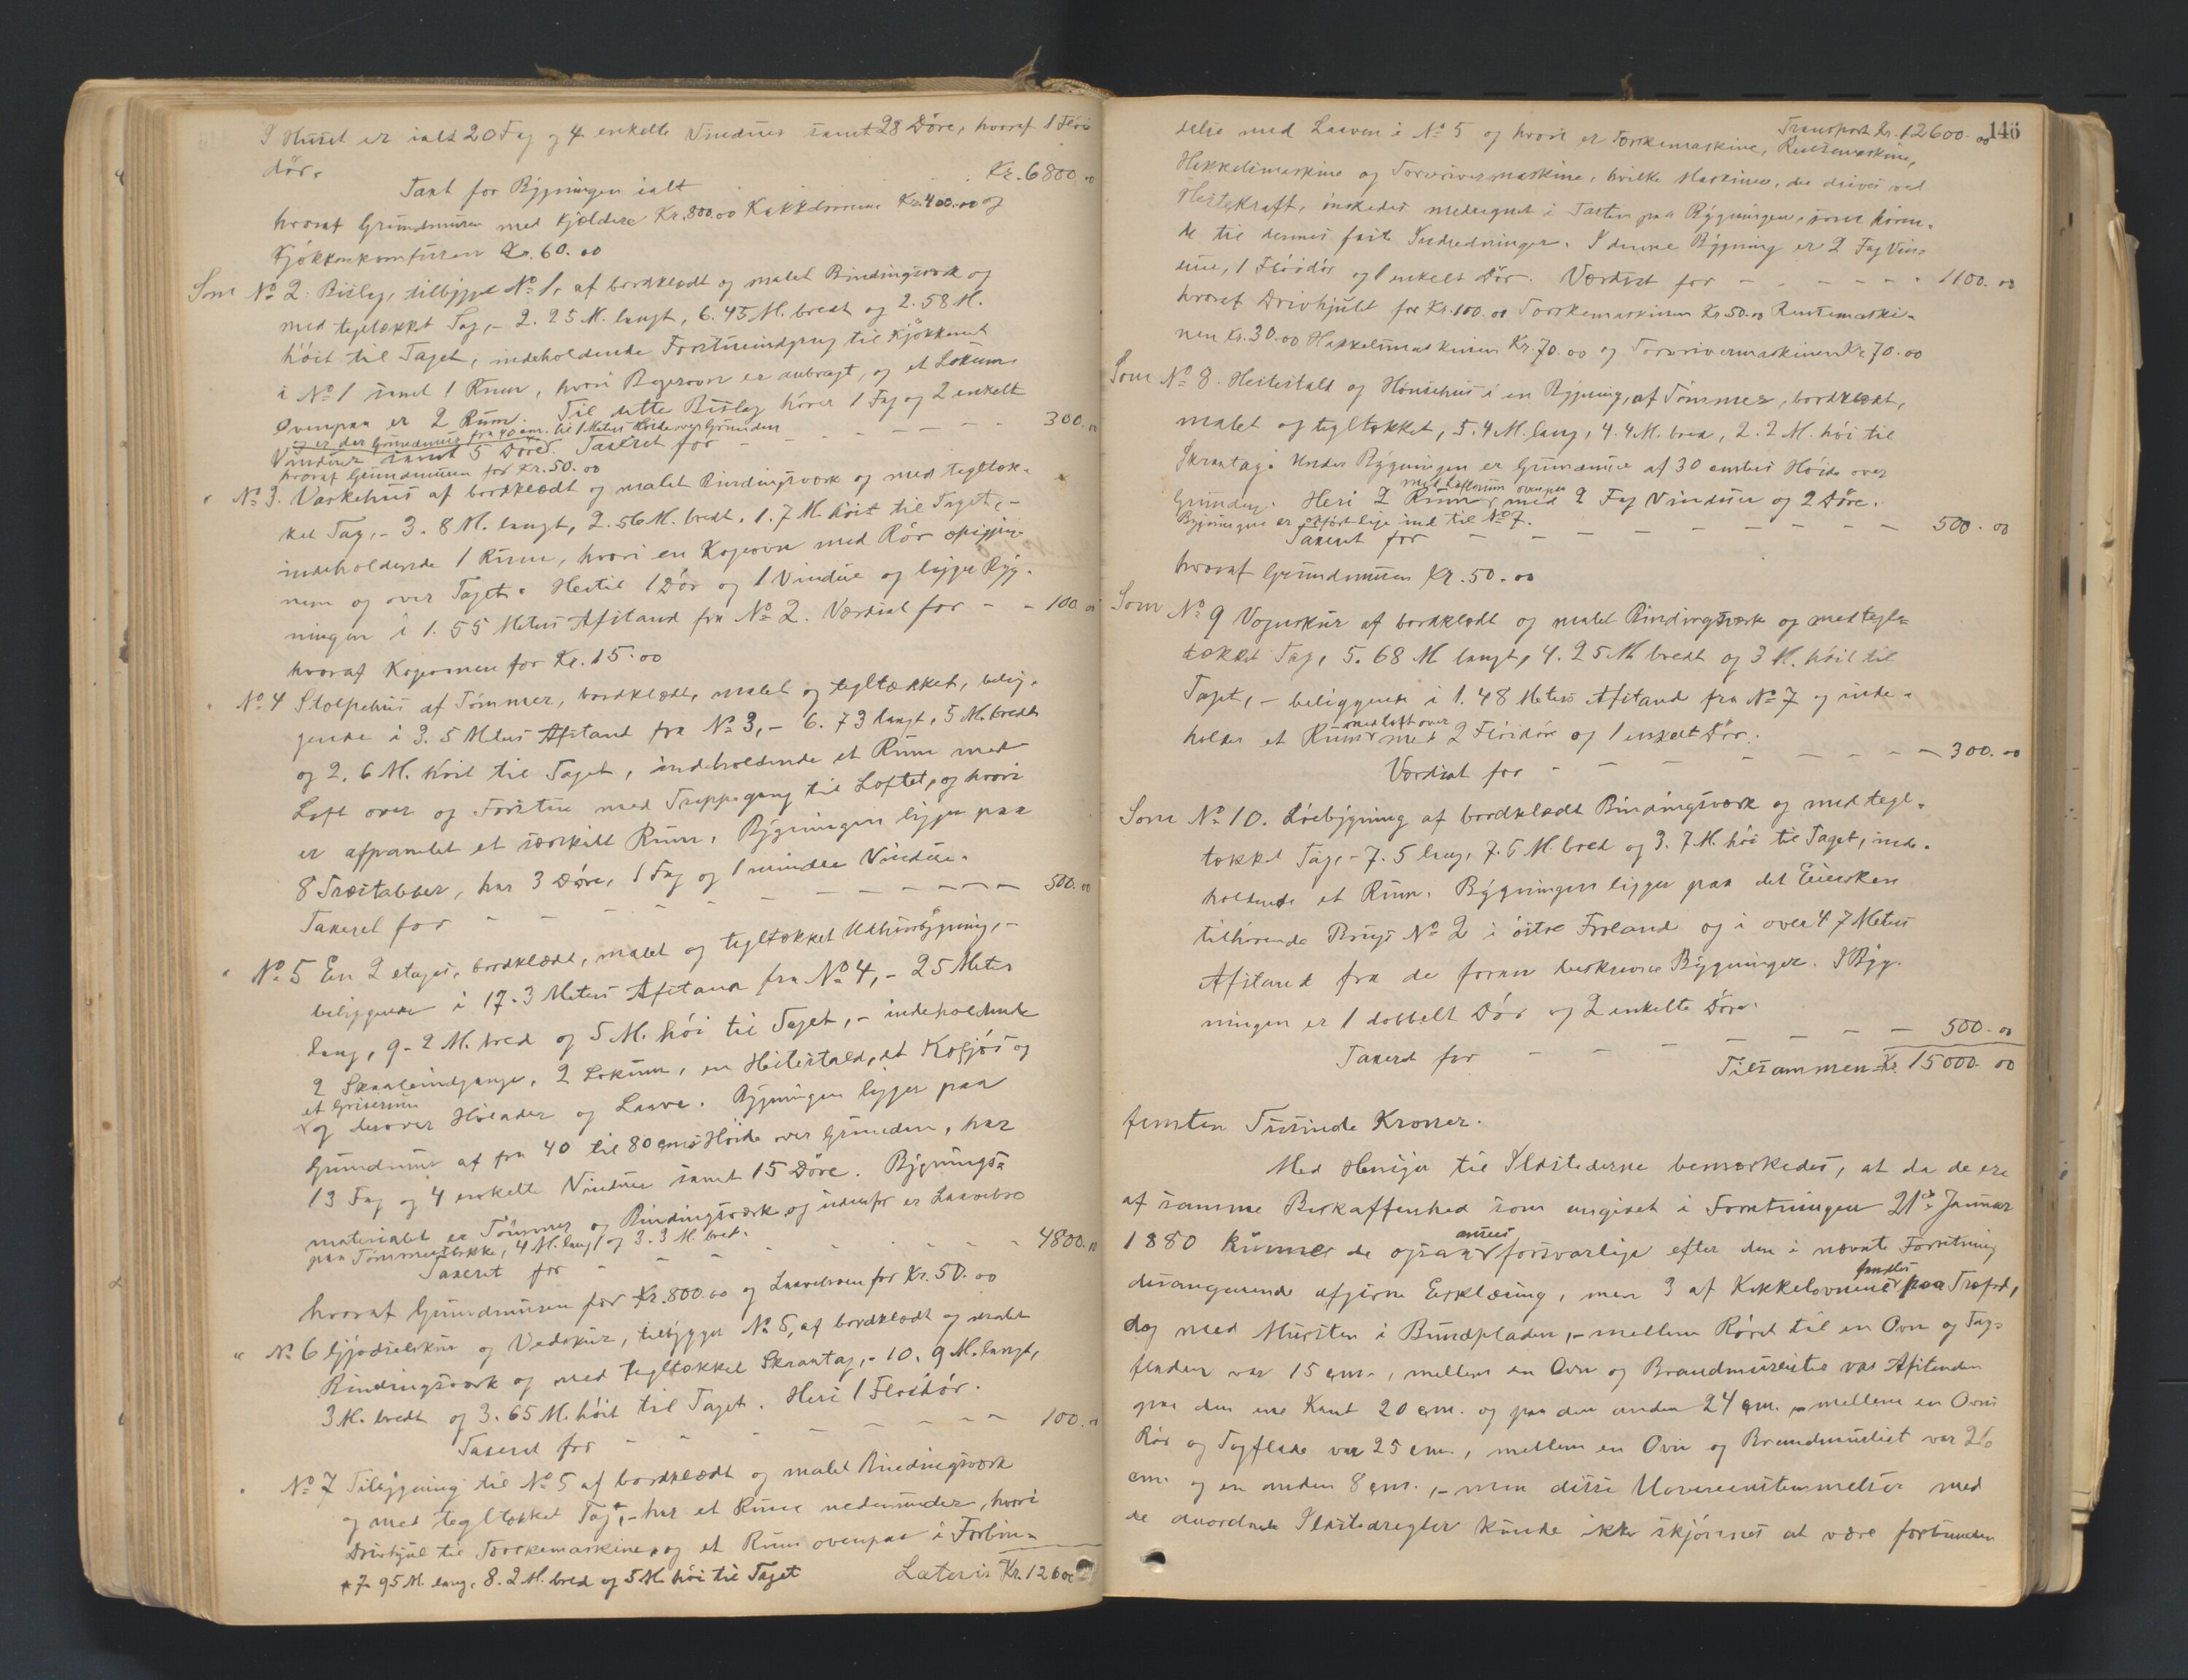 I Huset er ialt 20 Fag og 4 enkelte Vinduer samt 28 Döre, hvoraf 1 Flöi
dör.
Taxt for Bygningen ialt Kr. 6800.00
hvoraf Grundmuren med Kjældere Kr. 800.00 Kakkelovnene Kr. 400.00 og
Kjökkenkomfuren Kr. 60.00
Som No 2. Bislag, tilbygget No 1, af bordklædt og malet Bindingsværk og
med tegltækket Tag, – 2.25 M. langt, 6.45 M. bredt og 2.58 M.
höit til Taget, indeholdende Forstueindgang til Kjökkenet
i No 1 samt 1 Rum, hvori Bagerovn er anbragt, og et Lokum.
Ovenpaa er 2 Rum. Til dette Bislag hörer 1 Fag og 2 enkelt
og er der Grundmur fra 40 cm. til 1 Meters Höide over Grunden
Vinduer samt 5 Döre. Taxeret for – – – – – 300.00
hvoraf Grundmuren for Kr. 50.00
" No 3. Vaskehus af bordklædt og malet Bindingsværk og med tegltæk-
ket Tag, – 3.8 M. langt, 2.56 M. bredt, 1.7 M. höit til Taget, –
indeholdende 1 Rum, hvori en Kogeovn med Rör opigjen-
nem og over Taget. Hertil 1 Dör og 1 Vindue og ligger Byg-
ningen i 1.55 Meters Afstand fra No 2. Værdsat for – – 100.00
hvoraf Kogeovnen for Kr. 15.00
" No 4 Stolpehus af Tömmer, bordklædt, malet og tegltækket, belig-
gende i 3.5 Meters Afstand fra No 3, – 6.73 langt, 5 M. bredt
og 2.6 M. höit til Taget, indeholdende et Rum med
Loft over og Forstue med Trappegang til Loftet, og hvori
er afpanelet et særskilt Rum. Bygningen ligger paa
8 Træstabber, har 3 Döre, 1 Fag og 1 mindre Vindue.
Taxeret for – – – – – 500.00
" No 5 En 2 etages, bordklædt, malet og tegltækket Udhusbygning, –
beliggende i 17.3 Meters Afstand fra No 4, – 25 Meter
lang, 9.2 M. bred og 5 M. höi til Taget, – indeholdende
2 Svaleindgange, 2 Lokum, en Hestestald, et Kofjös og
et Griserum
og derover Hölader og Laave. Bygningen ligger paa
Grundmur af fra 40 til 80 cms Höide over Grunden, har
13 Fag og 4 enkelte Vinduer samt 15 Döre. Bygnings-
materialet er Tömmer og Bindingsværk og udenfor er Laavebro
paa Tömmerstokke, 4 M. lang og 3.3 M. bred.
Taxeret for – – – – – 4800.00
hvoraf Grundmuren for Kr. 800.00 og Laavebroen for Kr. 50.00
" No 6 Gjödselskur og Vedskur, tilbygget No 5, af bordklædt og malet
Bindingsværk og med tegltækket Skraatag, – 10.9 M. langt,
3 M. bredt og 3.65 M. höit til Taget. Heri 1 Flöidör.
Taxeret for – – – – – 100.00
" No 7 Tilbygning til No 5 af bordklædt og malet Bindingsværk
og med tegltækket Tag*, – har et Rum nedenunder, hvori
Drivhjul til Tærskemaskine, og et Rum ovenpaa i Forbin-
* 7.95 M. lang, 8.2 M. bred og 5 M. höi til Taget Lateris Kr. 12600
146
Transport Kr. 12600.00
delse med Laaven i No 5 og hvori er Tærskemaskine, Rensemaskine,
Hakkelsmaskine og Torvrivermaskine, hvilke Maskiner, der drives ved
Hestekraft, önskedes medregnet i Taxten paa Bygningen, som hören-
de til dennes faste Indredninger. I denne Bygning er 2 Fag Vin-
duer, 1 Flöidör og 1 enkelt Dör. Værdsat for – – – – 1100.00
hvoraf Drivhjulet for Kr. 100.00 Tærskemaskinen Kr. 50.00 Rensemaski-
nen Kr. 30.00 Hakkelsmaskinen Kr. 70.00 og Torvrivermaskinen Kr. 70.00
Som No 8. Hestestald og Hönsehus i en Bygning, af Tömmer, bordklædt,
malet og tegltækket, 5.4 M. lang, 4.4 M. bred, 2.2 M. höi til
Skraatag. Under Bygningen er Grundmur af 30 cmters Höide over
Grunden. Heri 2 Rum, med Loftrum ovenpaa med 2 Fag Vinduer og 2 Döre.
Bygningen er opfört lige ind til No 7.
Taxeret for – – – – – 500.00
hvoraf Grundmuren Kr. 50.00
Som No 9 Vognskur af bordklædt og malet Bindingsværk og med tegl-
tækket Tag, 5.68 M. langt, 4.25 M. bredt og 3 M. höit til
Taget, – beliggende i 1.48 Meters Afstand fra No 7 og inde-
holder et Rum med Loft over med 2 Flöidöre og 1 enkelt Dör.
Værdsat for – – – – – 300.00
Som No 10. Löebygning af bordklædt Bindingsværk og med tegl-
tækket Tag, – 7.5 lang, 7.5 M. bred og 3.7 M. höi til Taget, inde-
holdende et Rum. Bygningen ligger paa det Eiersken
tilhörende Brugs No 2 i östre Froland og i over 47 Meters
Afstand fra de foran beskrevne Bygninger. I Byg-
ningen er 1 dobbelt Dör og 2 enkelte Döre.
Taxeret for – – – – – 500.00
Tilsammen Kr. 15000.00
femten Tusinde Kroner.
Med Hensyn til Ildstederne bemærkedes, at da de ere
af samme Beskaffenhed som angivet i Forretningen 21de Januar
1880 kunne de ogsaa ansees forsvarlige efter den i nævnte Forretning
desangaaende afgivne Erklæring, men 3 af Kakkelovnene fandtes paa Træfod,
dog med Mursten i Bundpladen, – mellem Röret til en Ovn og Tag-
fladen var 15 cm., mellem en Ovn og Brandmurslisten var Afstanden
paa den ene Kant 20 cm. og paa den anden 24 cm. – mellem en Ovns
Rör og Tagflade var 25 cm., mellem en Ovn og Brandmurlist var 26
cm. og en anden 8 cm., – men disse Uoverensstemmelser med
de anordnede Ildstedsregler kunde ikke skjönnes at være forbunden